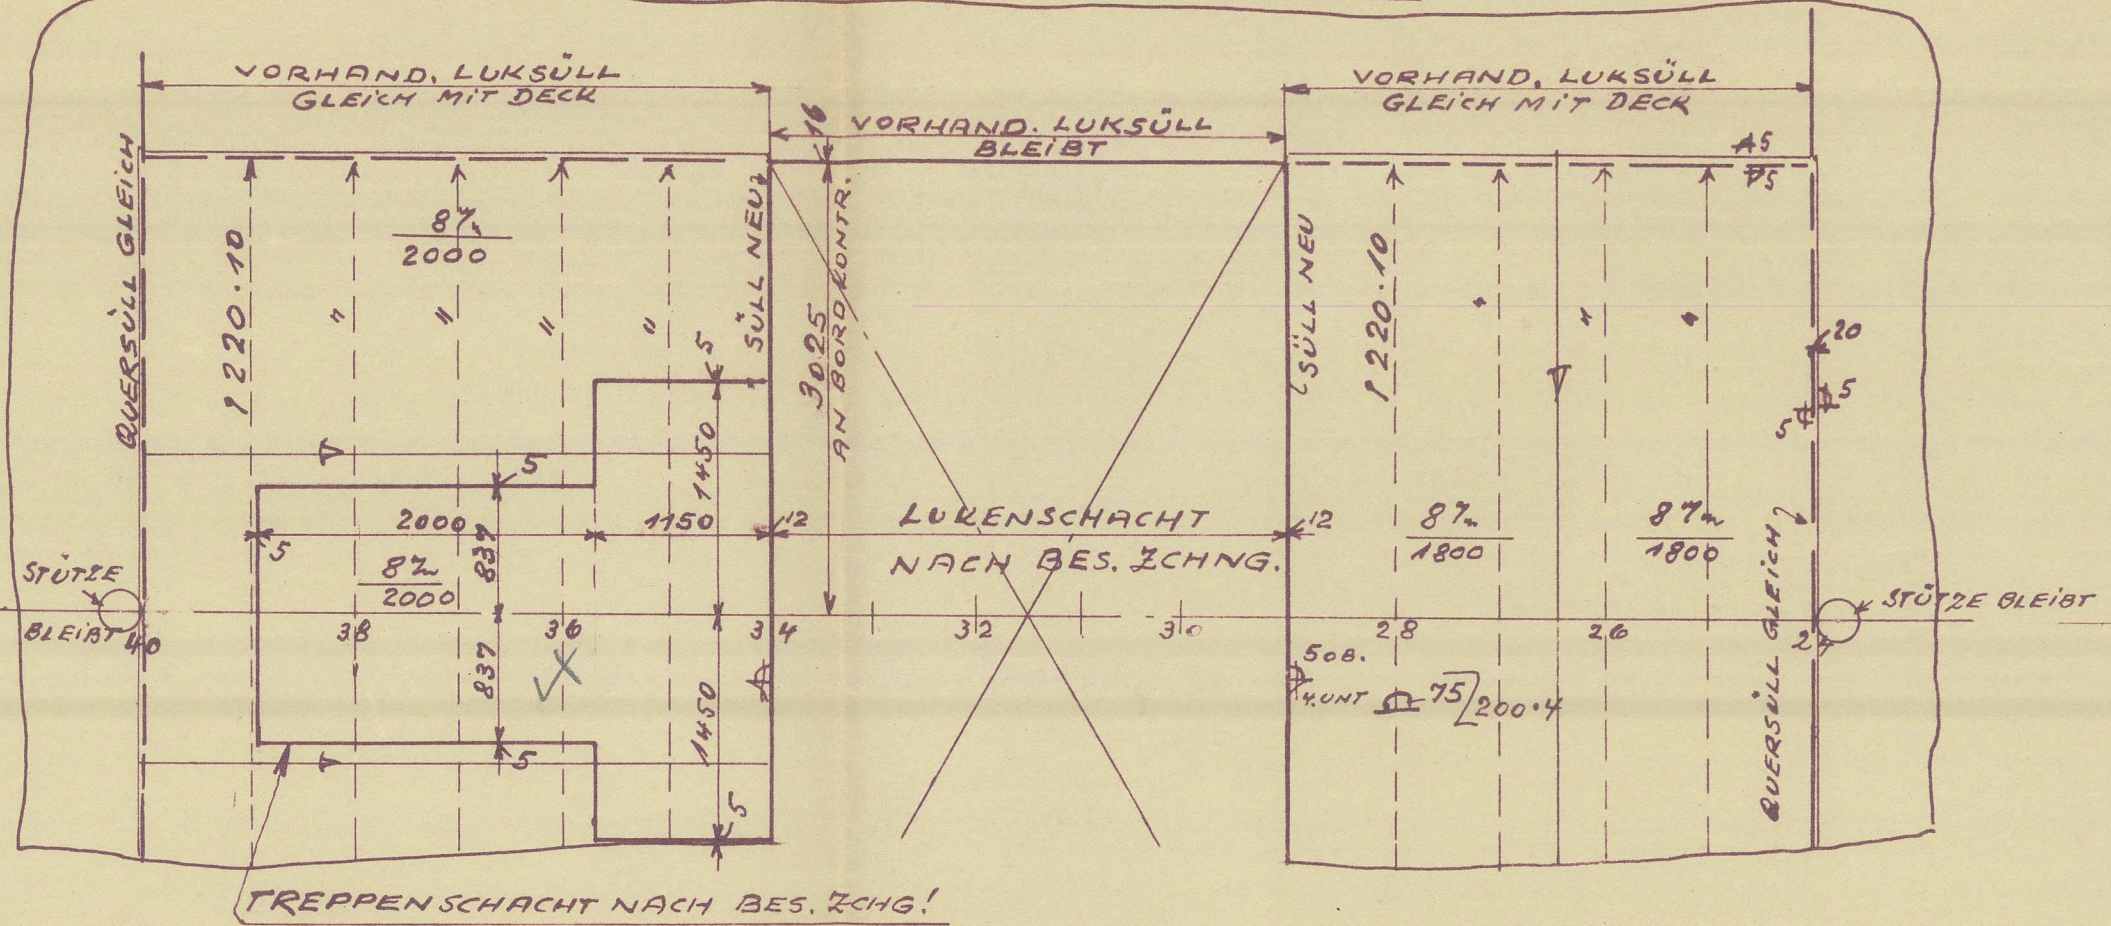 VORHAND. LUKSÜLL
GLEICH MIT DECK
VORHAND. LUKSÜLL
BLEIBT
VORHAND. LUKSÜLL
GLEICH MIT DECK
16
5
5
QUERSÜLL GLEICH
220·10
2000
" " " "
SÜLL NEU
3025
AN BORD KONTR.
SÜLL NEU
220·10
" " "
20
5
5
5
5
1450
2000
1150
12
5
837
LUKENSCHACHT
NACH BES. ZCHNG.
12
1800
1800
2000
STÜTZE
BLEIBT
40
38
36
34
32
30
28
26
24
STÜTZE BLEIBT
837
1450
5
5
5 OB.
4. UNT
75
200·4
QUERSÜLL GLEICH
TREPPENSCHACHT NACH BES. ZCHG!